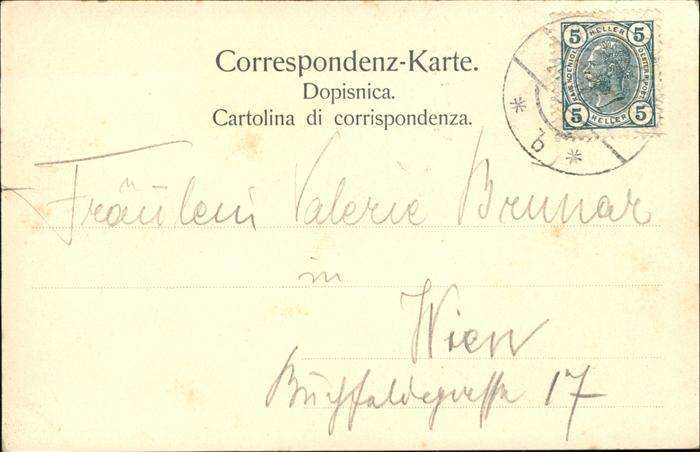 Correspondenz-Karte.
Dopisnica.
Cartolina di corrispondenza.
5 HELLER 5
5 HELLER 5
* b *
Fräulein Valerie Brunar
in
Wien
17